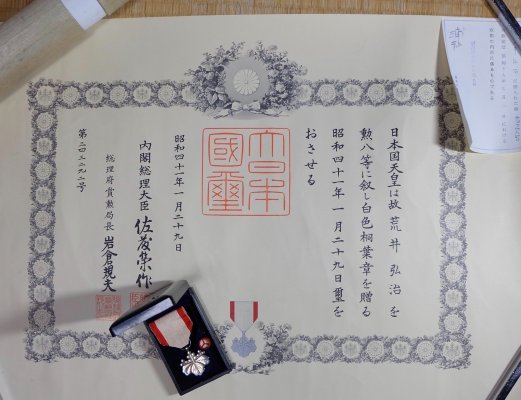 日本国天皇は故荒井弘治を
勲八等に叙し白色桐葉章を贈る
昭和四十一年一月二十九日璽を
おさせる
大日本
國璽
昭和四十一年一月二十九日
内閣総理大臣 佐藤榮作
総理府賞勲局長 岩倉規夫
第二四三二九二号